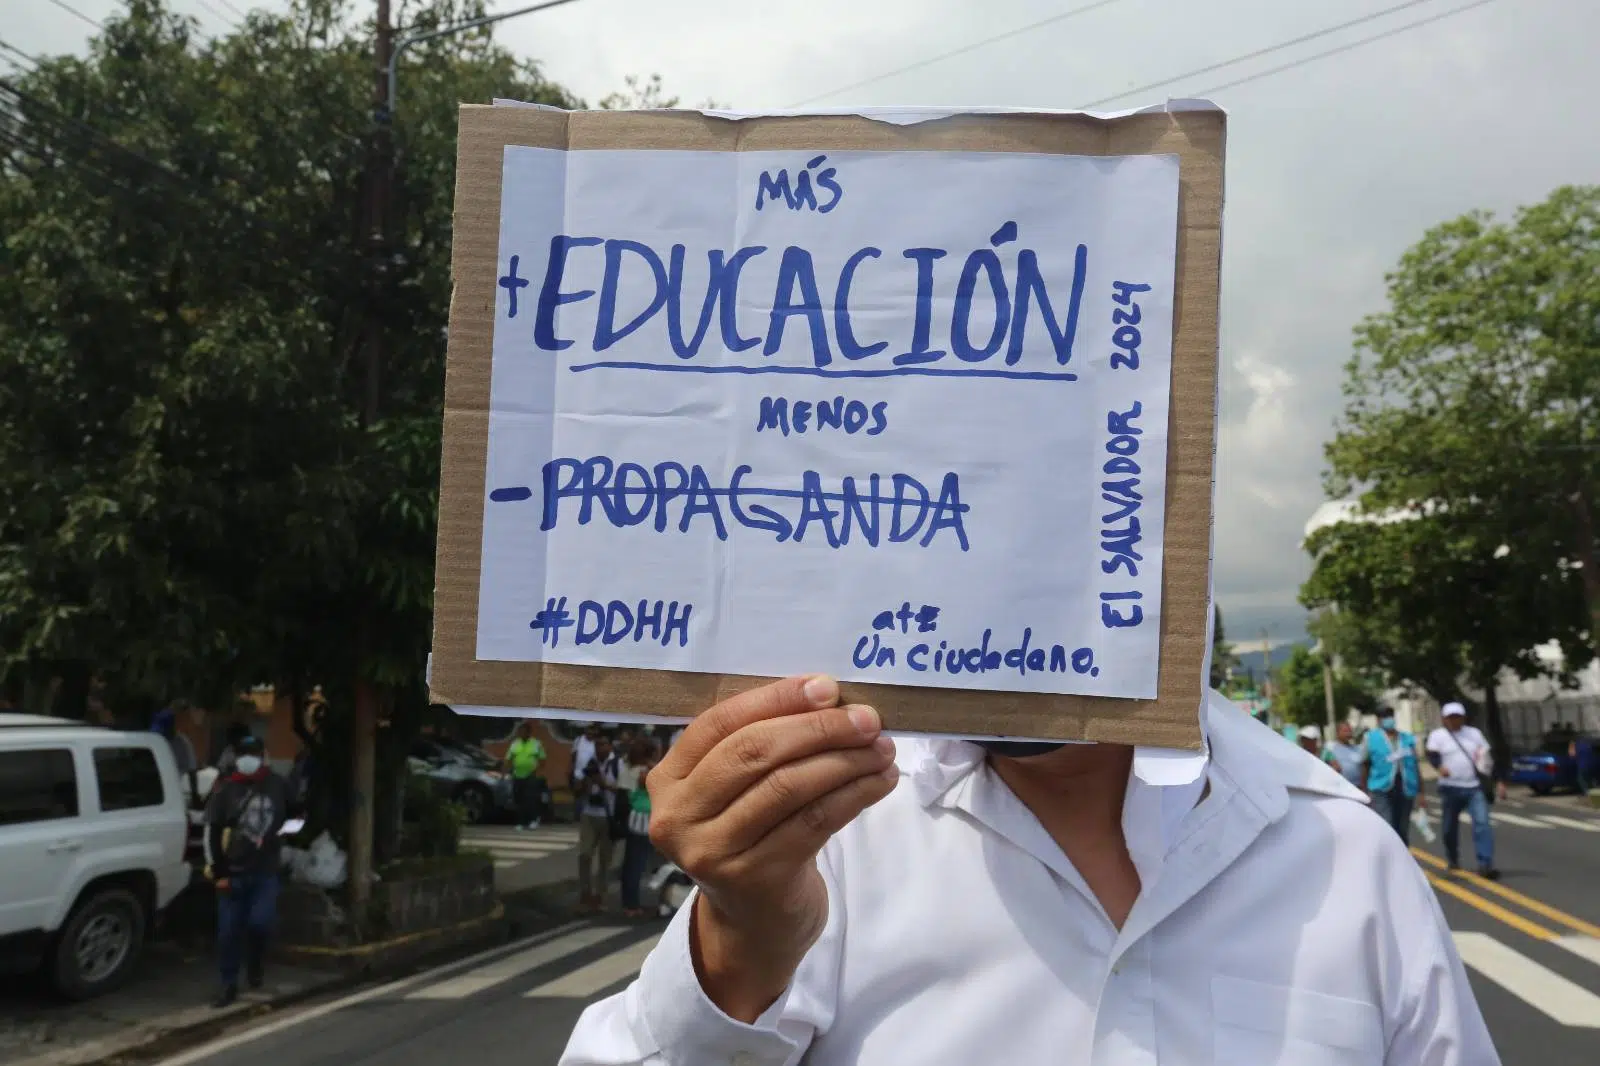 MÁS
+ EDUCACIÓN
MENOS
- PROPAGANDA
#DDHH
atte
Un ciudadano.
El SALVADOR 2024